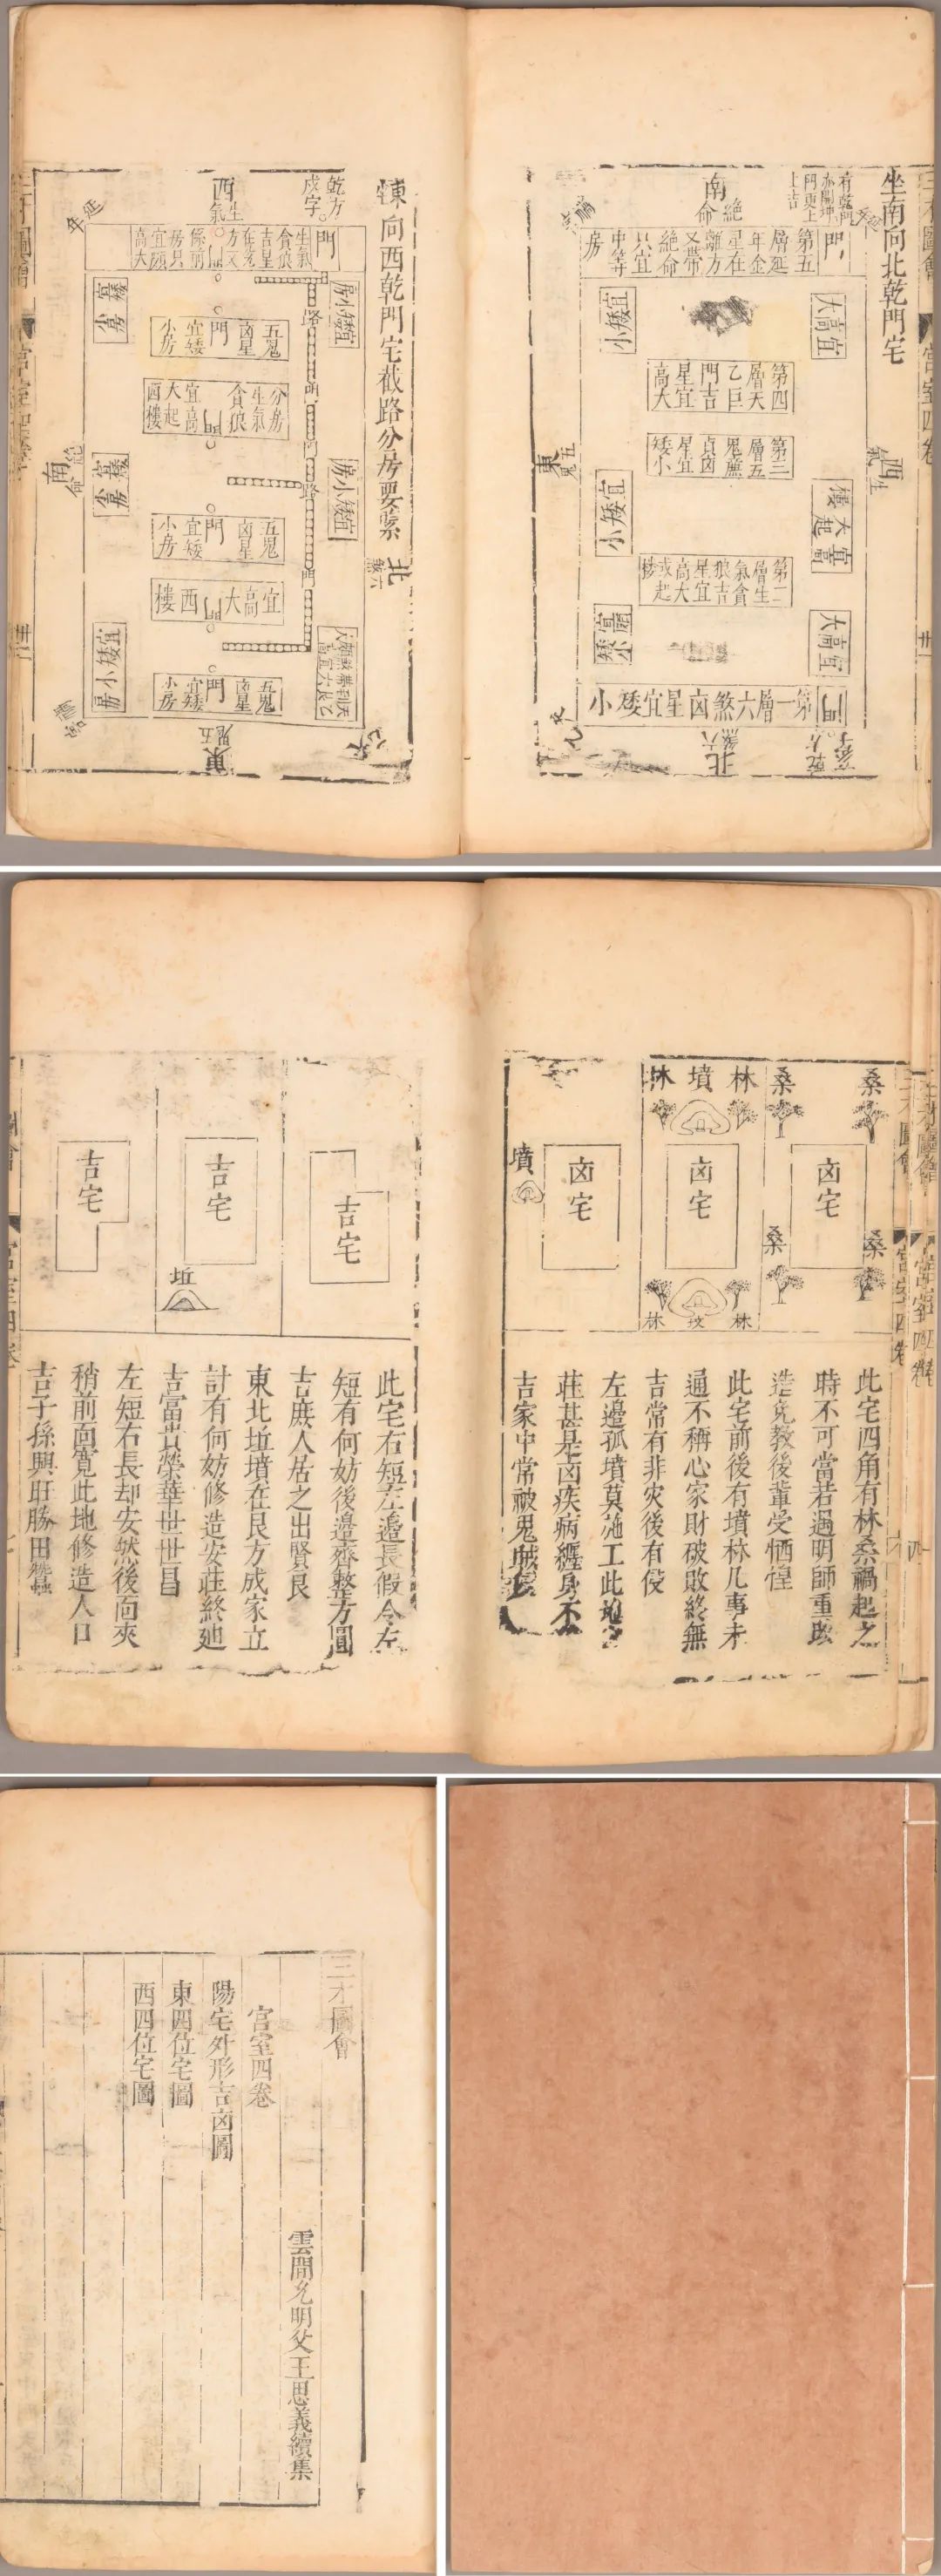 三才圖會
宮室四卷
卅一
坐南向北乾門宅
南
絕命
門
第五
層延
年金
星在
離方
又帶
絕命
只宜
中等
房
宜高大
宜矮小
第四
層天
乙巨
門吉
星宜
高大
第三
層五
鬼廉
貞凶
星宜
矮小
西
生氣
東
五鬼
宜高大起樓
宜矮小
第二
層生
氣貪
狼吉
星宜
高大
或起
樓
宜高大
第一層六煞凶星宜矮小
門
北
六煞
向西乾門宅截路分房要緊
乾方
戌字
西
生氣
延年
門
生氣
貪狼
吉星
在兌
方又
係前
房只
宜頗
高大
宜矮小房
路
五鬼
凶星
門
宜矮
小房
分房
生氣
貪狼
門
宜高
大起
西樓
南
絕命
北
六煞
宜矮小房
路
五鬼
凶星
門
宜矮
小房
宜高大
門
西樓
宜矮小房
五鬼
凶星
門
宜矮
小房
東
五鬼
三才圖會
宮室四卷
四
桑
桑
凶宅
桑
桑
林
墳
林
凶宅
林
墳
林
墳
凶宅
此宅四角有林桑禍起之
時不可當若遇明師重改
造免教後輩受恓惶
此宅前後有墳林凡事未
通不稱心家財破敗終無
吉常有非災後有侵
左邊孤墳莫施工此地安
莊甚是凶疾病纏身不
吉家中常被鬼賊侵
吉宅
吉宅
坵
吉宅
此宅右短左邊長假令左
短有何妨後邊齊整方圓
吉庶人居之出賢良
東北坵墳在艮方成家立
計有何妨修造安莊終迪
吉富貴榮華世世昌
左短右長却安然後面夾
稍前面寬此地修造人口
吉子孫興旺勝田蠶
三才圖會
雲間允明父王思義續集
宮室四卷
陽宅外形吉凶圖
東四位宅圖
西四位宅圖